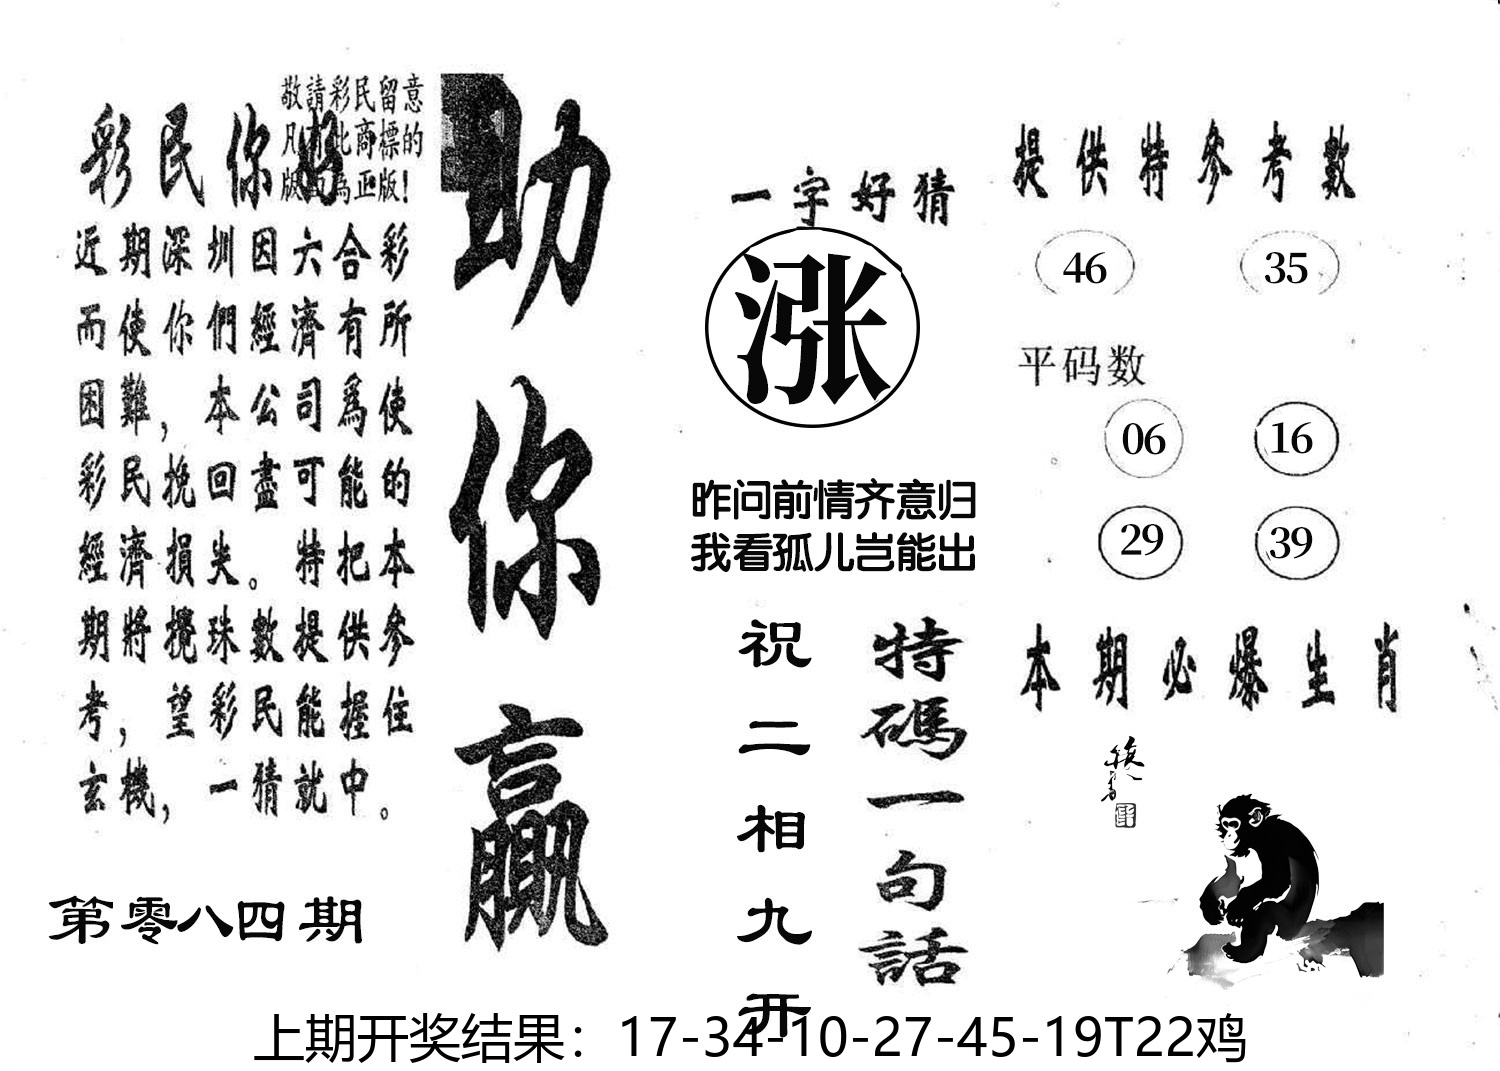 敬請彩民留意
凡有此商標的
版面為正版！
彩民你好
近期深圳因六合彩
而使你們經濟有所
困難，本公司爲使
彩民挽回盡可能的
經濟損失。特把本
期將攪珠數提供參
考，望彩民能握住
玄機，一猜就中。
第零八四期
助你贏
一字好猜
涨
昨问前情齐意归
我看孤儿岂能出
特碼一句話
祝二相九开
提供特參考數
46 35
平码数
06 16
29 39
本期必爆生肖
上期开奖结果：17-34-10-27-45-19T22鸡